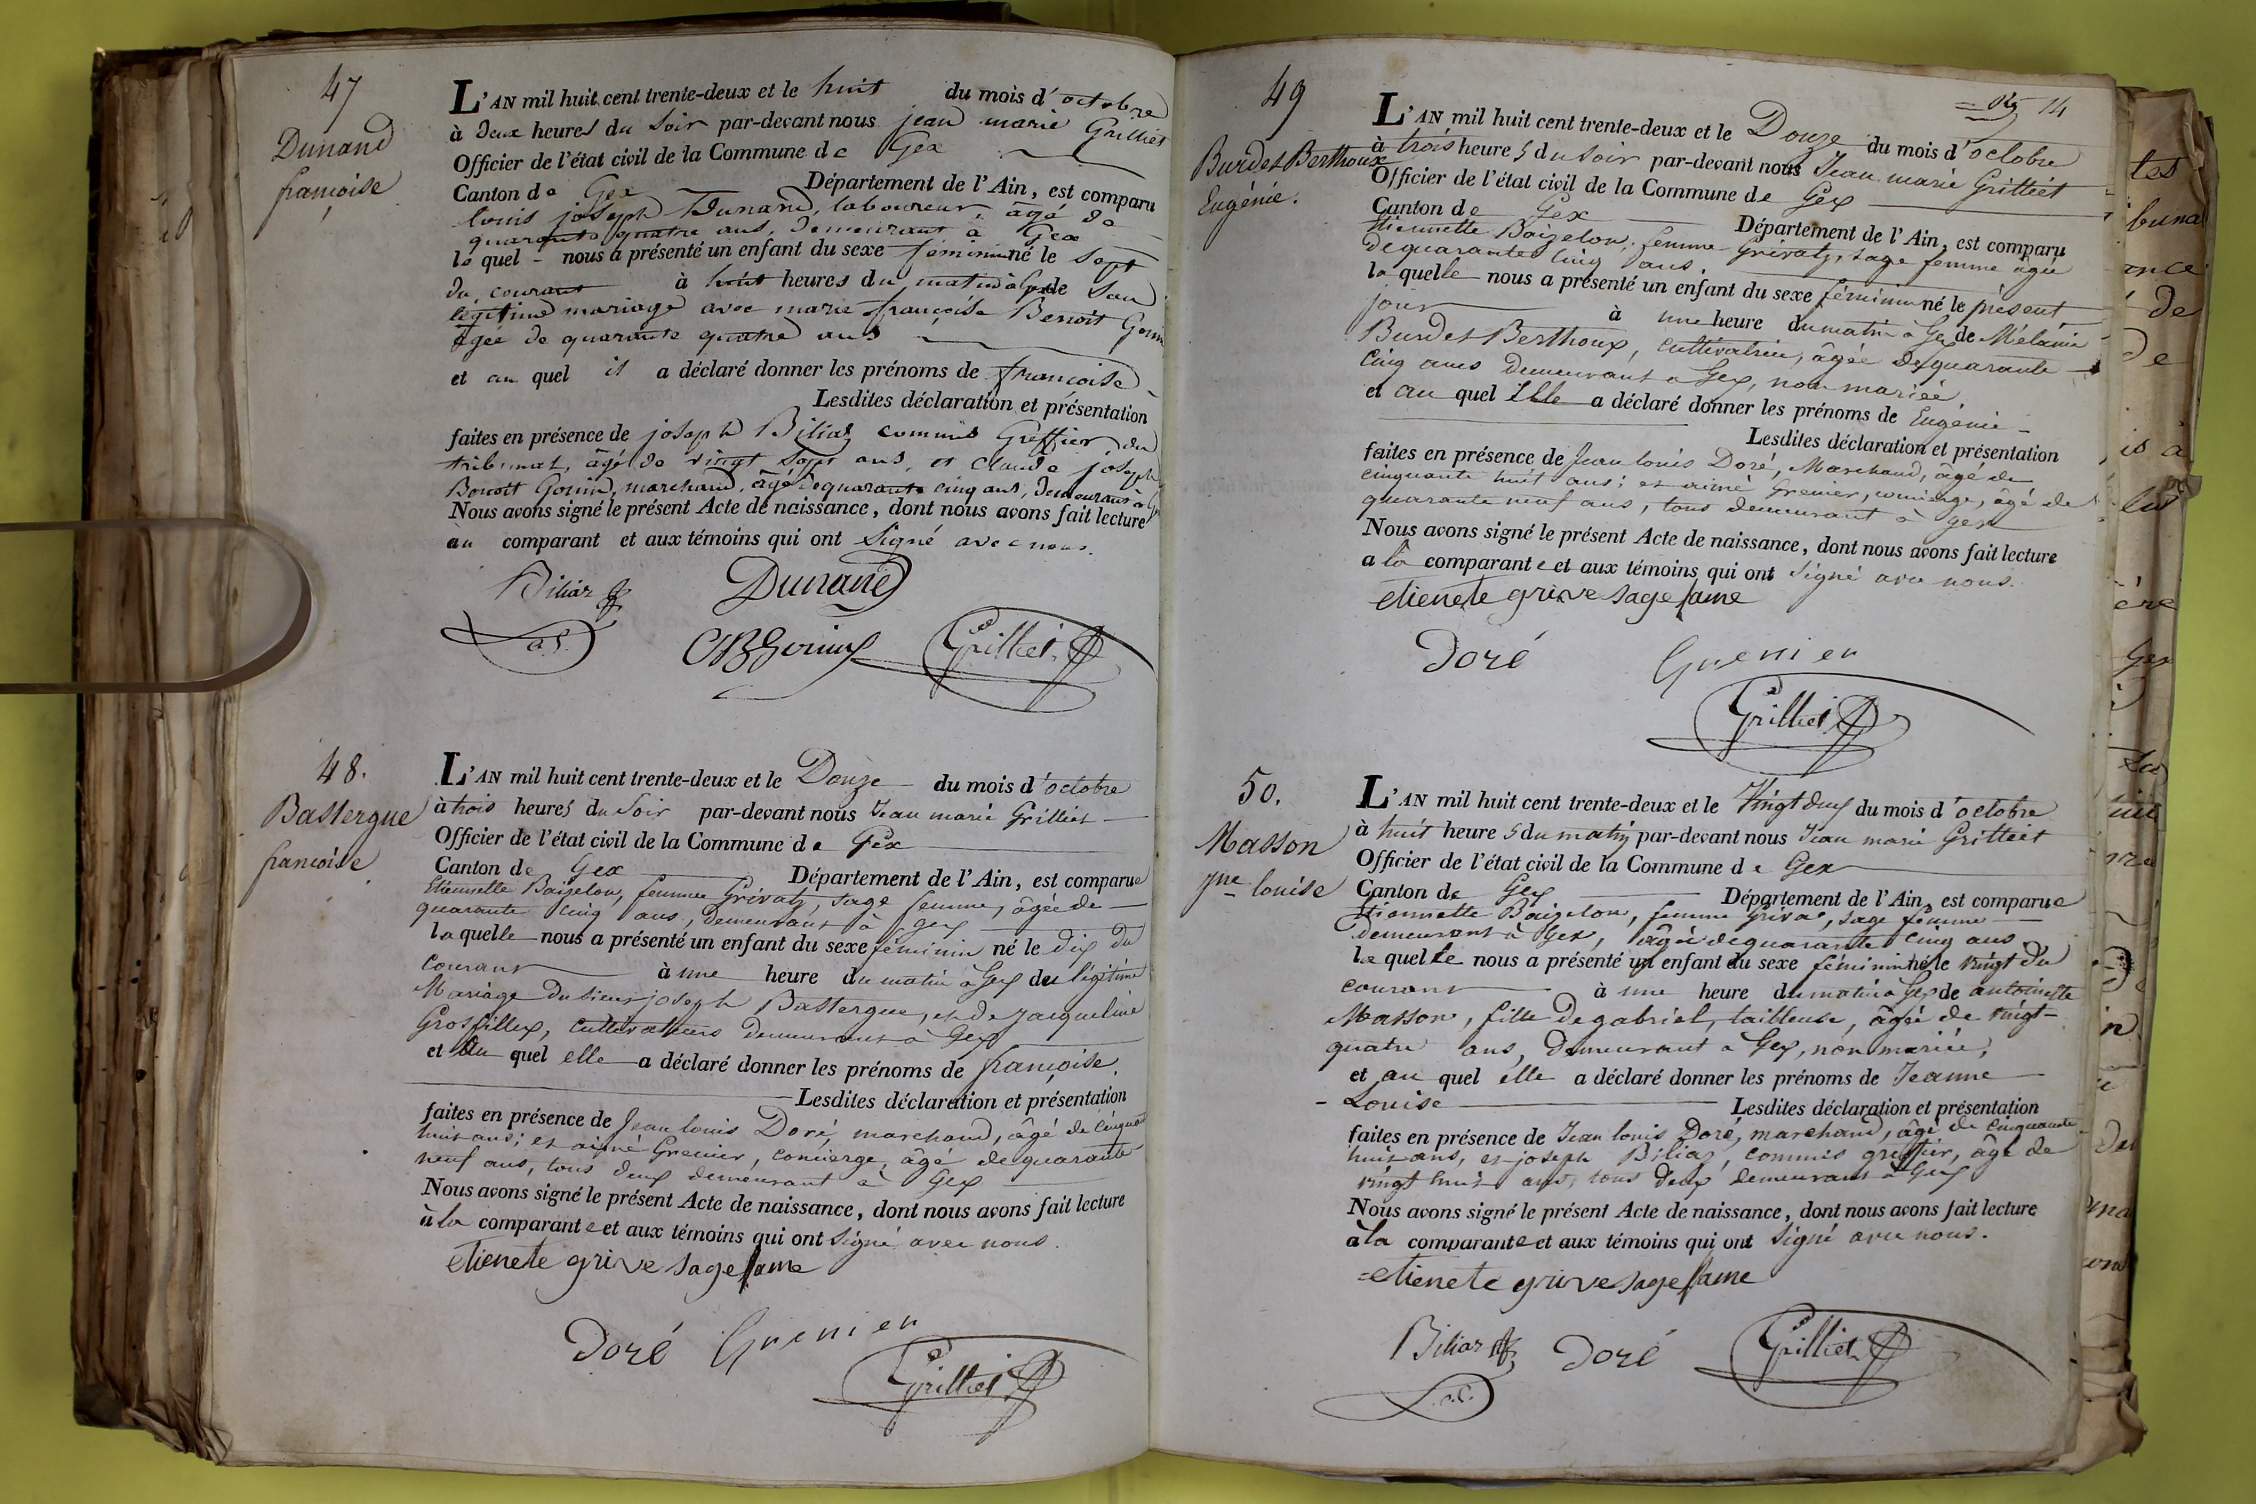 47
Dunand
françoise
L'AN mil huit cent trente-deux et le huit du mois d'octobre
à deux heures du soir par-devant nous jean marie Grilliet
Officier de l'état civil de la Commune de Gex
Canton de Gex Département de l'Ain, est comparu
louis joseph Dunand, laboureur, âgé de
quarante quatre ans, demeurant à Gex
le quel nous a présenté un enfant du sexe féminin né le sept
du courant à huit heures du matin à Gex de son
légitime mariage avec marie françoise Benoit Gonin
âgée de quarante quatre ans
et au quel il a déclaré donner les prénoms de françoise
Lesdites déclaration et présentation
faites en présence de joseph Biliaz commis Greffier du
tribunal, âgé de vingt sept ans, et Claude joseph
Benoit Gonin, marchand, âgé de quarante cinq ans, demeurans à
Nous avons signé le présent Acte de naissance, dont nous avons fait lecture
au comparant et aux témoins qui ont signé avec nous.
Biliaz Dunand
CJBGonin Grilliet
48.
Bastergue
françoise
L'AN mil huit cent trente-deux et le Douze du mois d'octobre
à trois heures du soir par-devant nous Jean marie Grilliet
Officier de l'état civil de la Commune de Gex
Canton de Gex Département de l'Ain, est comparue
Etiennette Baizelon, femme Grivatz, sage femme, âgée de
quarante cinq ans, demeurant à Gex
laquelle nous a présenté un enfant du sexe féminin né le dix du
courant à une heure du matin à Gex du légitime
Mariage du sieur joseph Bastergue, et de jacqueline
Grosfillex, cultivateurs demeurant à Gex
et au quel elle a déclaré donner les prénoms de françoise.
Lesdites déclaration et présentation
faites en présence de Jean louis Doré, marchand, âgé de cinquante
huit ans; et aimé Grenier, concierge, âgé de quarante
neuf ans, tous deux demeurant à Gex
Nous avons signé le présent Acte de naissance, dont nous avons fait lecture
à la comparante et aux témoins qui ont signé avec nous.
etienete grive sage fame
Doré Grenier
Grilliet
14
49
Burdet Berthoux
Eugénie.
L'AN mil huit cent trente-deux et le Douze du mois d'octobre
à trois heures du soir par-devant nous Jean marie Grilliet
Officier de l'état civil de la Commune de Gex
Canton de Gex Département de l'Ain, est comparu
Etiennette Baizelon, femme Grivatz, sage femme âgée
de quarante cinq ans.
la quelle nous a présenté un enfant du sexe féminin né le présent
jour à une heure du matin à Gex de Mélanie
Burdet Berthoux, cultivatrice, âgée de quarante
cinq ans demeurant à Gex, non mariée.
et au quel Elle a déclaré donner les prénoms de Eugénie
Lesdites déclaration et présentation
faites en présence de Jean louis Doré, Marchand, âgé de
cinquante huit ans; et aimé Grenier, concierge, âgé de
quarante neuf ans, tous demeurant à gex
Nous avons signé le présent Acte de naissance, dont nous avons fait lecture
a la comparante et aux témoins qui ont signé avec nous.
etienete grive sage fame
Doré Grenier
Grilliet
50.
Masson
jne louise
L'AN mil huit cent trente-deux et le Vingt deux du mois d'octobre
à huit heures du matin par-devant nous Jean marie Grilliet
Officier de l'état civil de la Commune de Gex
Canton de Gex Département de l'Ain, est comparue
Etiennette Baizelon, femme Griva, sage femme
demeurant à Gex, âgée de quarante cinq ans
la quelle nous a présenté un enfant du sexe féminin né le vingt du
courant à une heure du matin à Gex de antoinette
Masson, fille de gabriel, tailleuse, âgée de vingt-
quatre ans, demeurant à Gex, non mariée,
et au quel elle a déclaré donner les prénoms de Jeanne
- Louise Lesdites déclaration et présentation
faites en présence de Jean louis Doré, marchand, âgé de cinquante
huit ans, et joseph Biliaz, commis greffier, âgé de
vingt huit ans, tous deux demeurant à Gex
Nous avons signé le présent Acte de naissance, dont nous avons fait lecture
à la comparante et aux témoins qui ont signé avec nous.
etienete grive sage fame
Biliaz Doré Grilliet